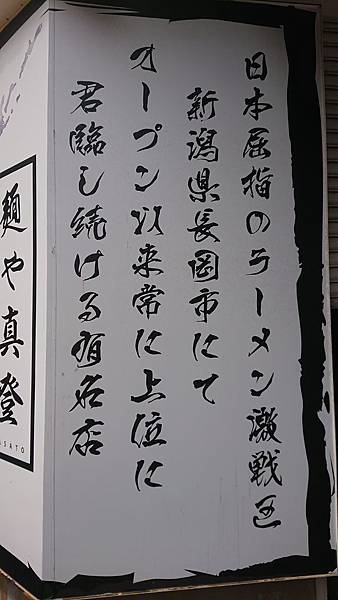 日本屈指のラーメン激戦区
新潟県長岡市にて
オープン以来常に上位に
君臨し続ける有名店
麺や真登
ASATO